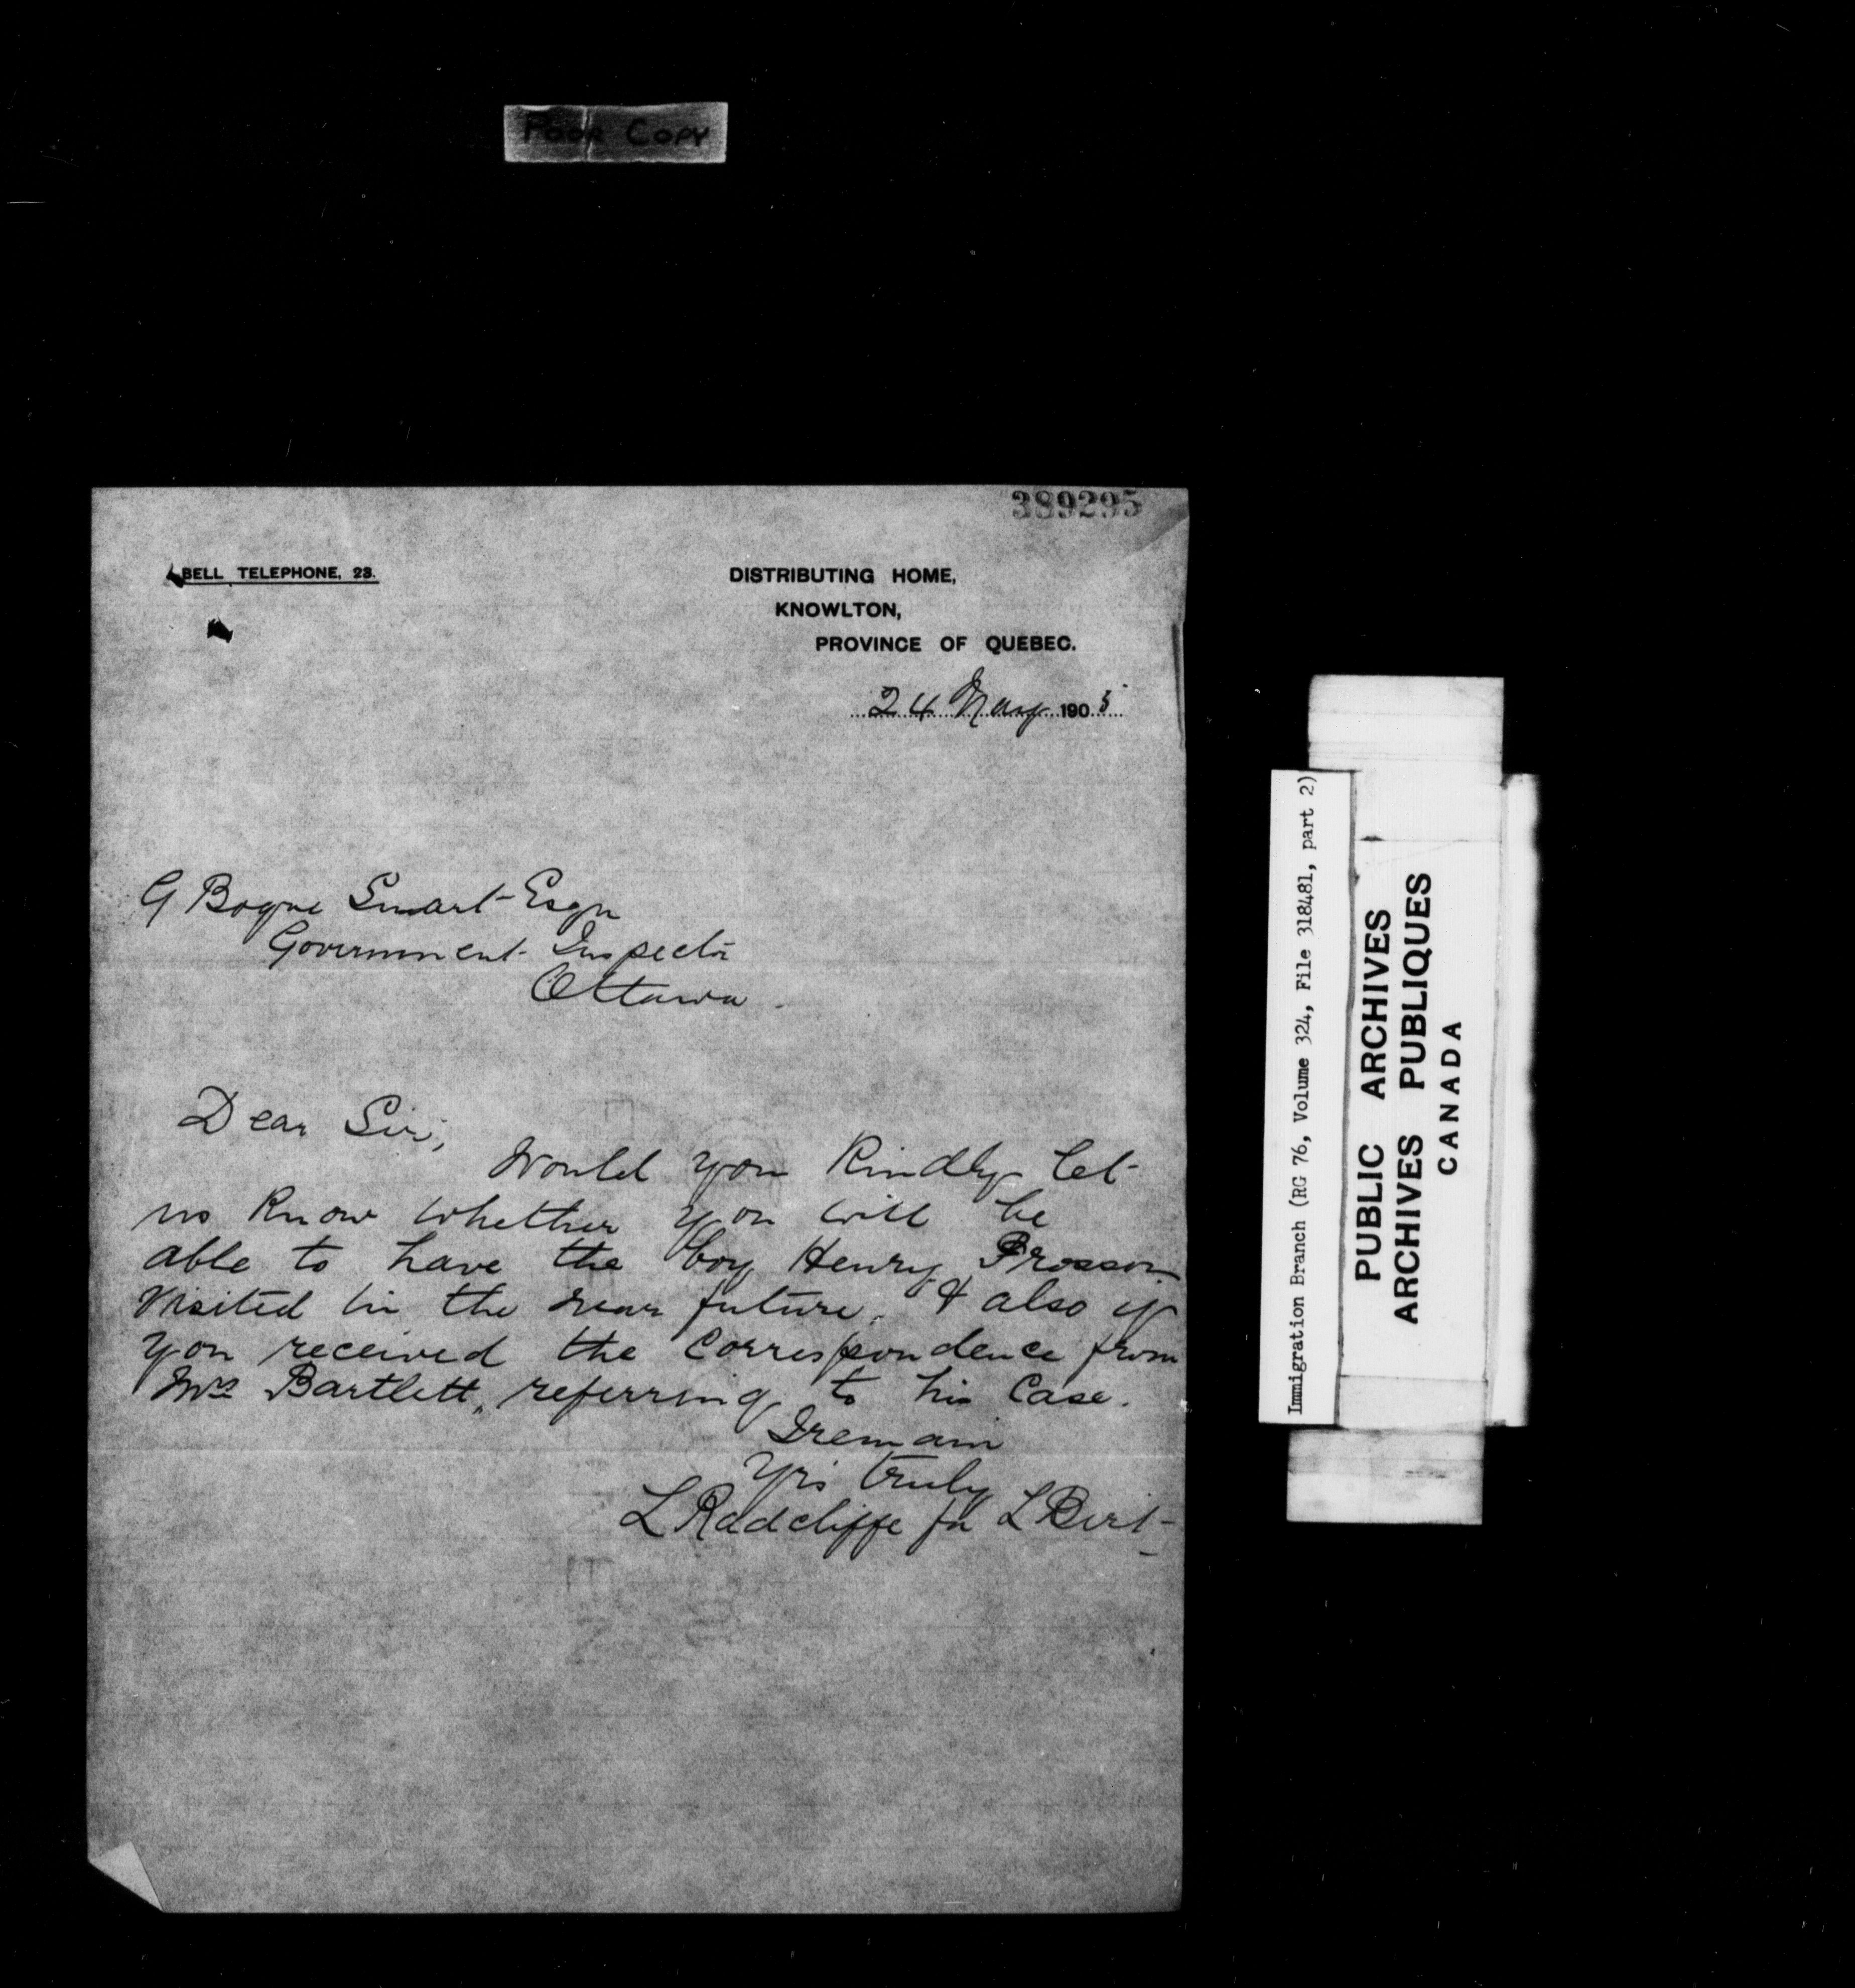 POOR COPY
389295
BELL TELEPHONE, 23.
DISTRIBUTING HOME,
KNOWLTON,
PROVINCE OF QUEBEC.
24 May 1905
G Bogue Smart Esqr
Government Inspector
Ottawa.
Dear Sir,
Would you Kindly let
us Know whether you will be
able to have the boy Henry
visited in the near future. & also if
you received the Correspondence from
Mrs Bartlett, referring to his Case.
I remain
Yrs truly
L Radcliffe for L Birt
Immigration Branch (RG 76, Volume 324, File 318481, part 2)
PUBLIC ARCHIVES
ARCHIVES PUBLIQUES
CANADA